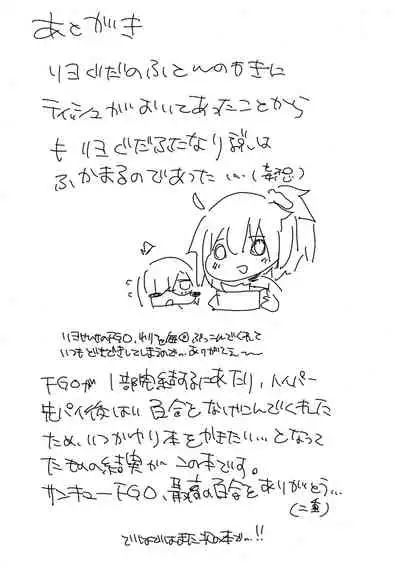 あとがき
リヨぐだのふとんのわきに
ティッシュがおいてあったことから
も リヨぐだふたなり説は
ふかまるのであった…(妄想)
リヨせんせのFGO、わりと毎回ぶっこんでくれて
いつもドキドキしてしまうので…ありがてぇ〜〜
FGOが1部完結するにあたり、ハイパー
先パイ後はい百合をなげこんでくれた
ため、いつかゆり本をかきたい…となって
たものの結実がこの本です。
サンキューFGO、最高の百合をありがとう…
(二重)
ではではまた次の本で…!!